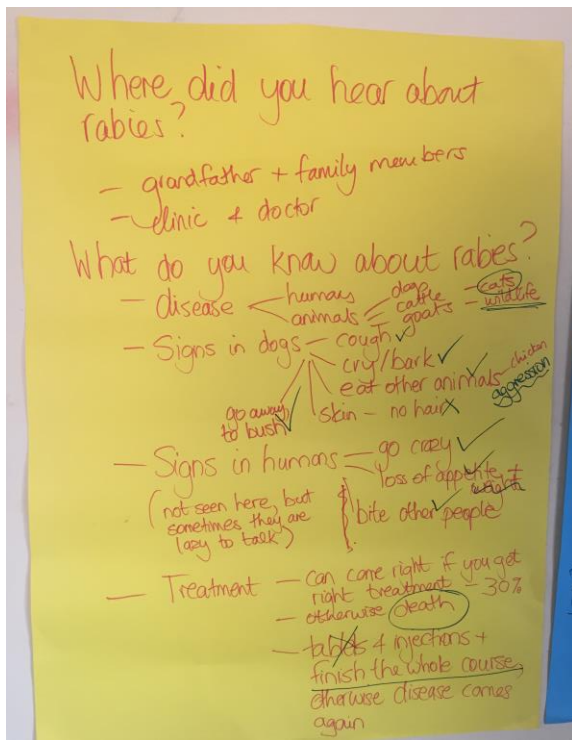 Where did you hear about
rabies?
– grandfather + family members
– clinic + doctor
What do you know about rabies?
– disease – humans
animals – dogs
cattle
goats
– cats
– wildlife
– Signs in dogs – cough ✓
cry/bark ✓
eat other animals ✓ – chicken
aggression
skin – no hair X
go away
to bush ✓
– Signs in humans – go crazy ✓
loss of appetite +
weight
(not seen here, but
sometimes they are
lazy to talk)
bite other people ✓
– Treatment – can come right if you get
right treatment – 30%
– otherwise death
– tablets + injections +
finish the whole course,
otherwise disease comes
again